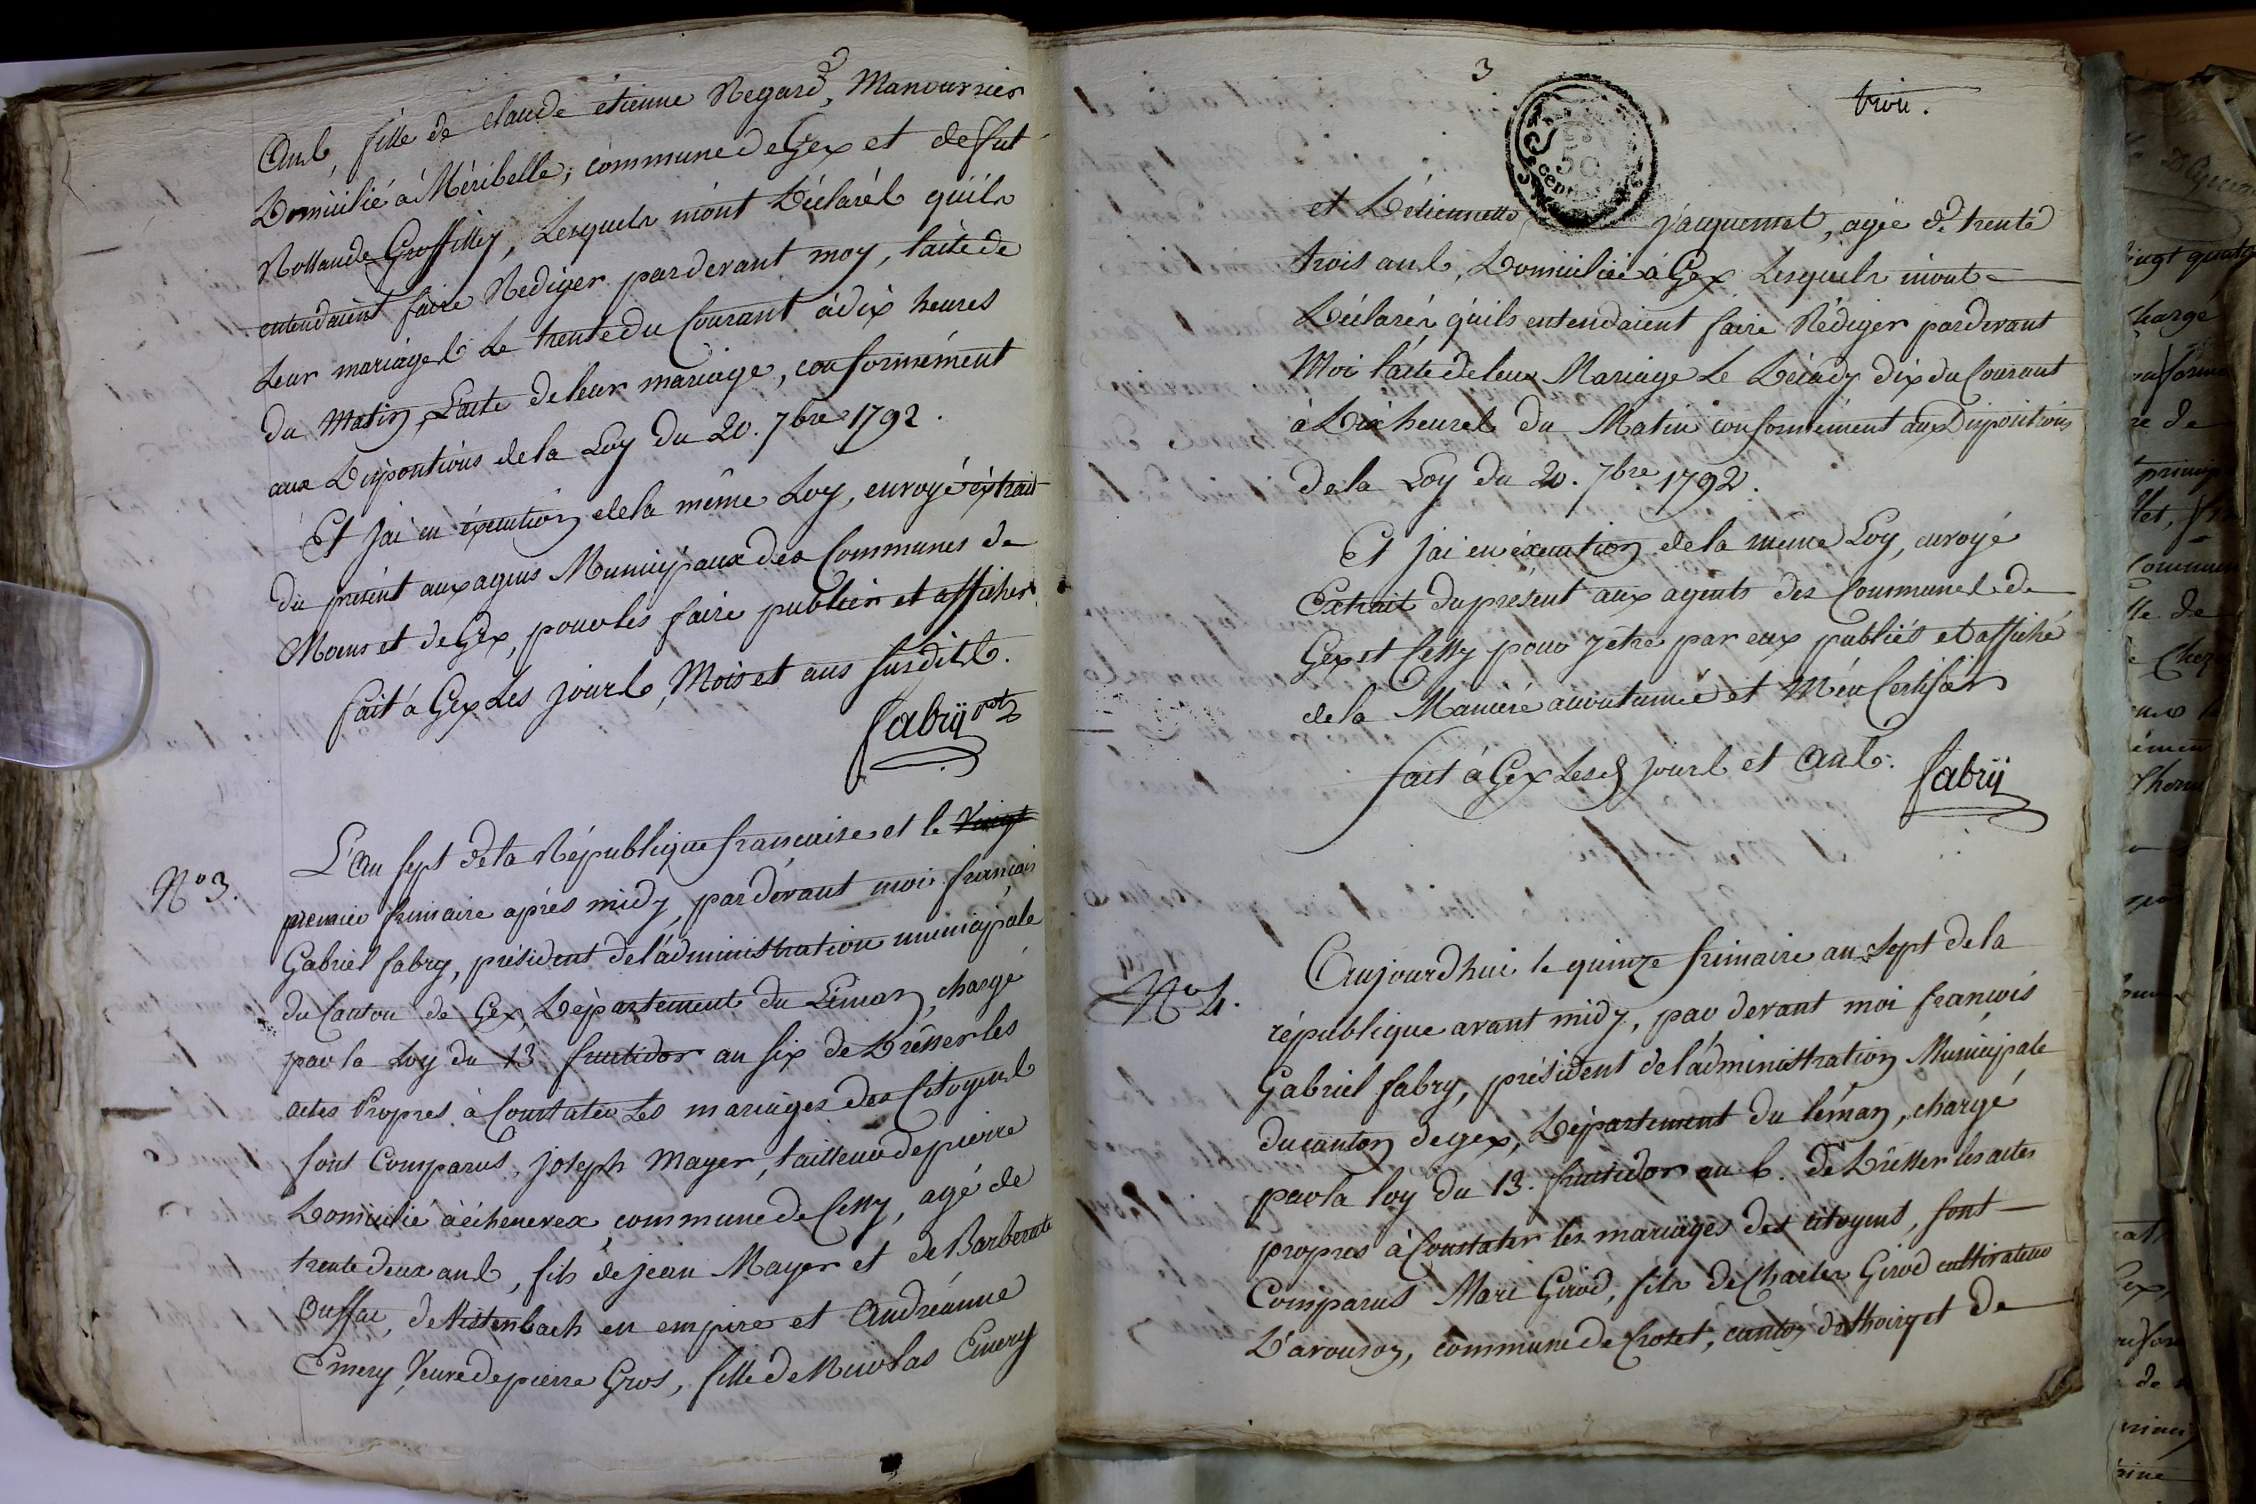 Ans, fille de claude étienne Regard, Manouvrier
Domicilié à Méribelle, commune de Gex et de fut
Rollande Groffilley, Lesquels m'ont Déclarés qu'ils
entendaient faire Rediger pardevant moy, l'acte de
Leur mariages Le trente du Courant à dix heures
du Matin, L'acte de leur mariage, conformément
aux Dispositions de la Loy du 20. 7bre 1792.
Et j'ai en éxécution de la même Loy, envoyé extrait
du présent aux agens Municipaux des Communes de
Moens et de Gex, pour les faire publier et afficher
fait à Gex Les jours, Mois et ans susdits.
fabry
N° 3.
L'an sept de la République française et le vingt
premier frimaire après midy, pardevant moi françois
Gabriel fabry, président de l'administration municipale
du Canton de Gex, Département du Léman, chargé
par la Loy du 13 fructidor an six de Dresser les
actes Propres à Constater Les mariages des Citoyens
sont Comparus, joseph Mayer, tailleur de pierre
Domicilié à échenevex, commune de Cessy, agé de
trente deux ans, fils de jean Mayer et de Barberate
de en empire et Andréanne
Emery Veuve de pierre Gros, fille de Nicolas Emery
3
trois.
50
cent
et D'étiennette jacquemet, agée de trente
trois ans, Domiciliée à Gex Lesquels m'ont
Déclarés qu'ils entendaient faire Rédiger pardevant
Moi l'acte de leur Mariage Le Décady dix du Courant
à Dix heures du Matin conformément aux Dispositions
de la Loy du 20. 7bre 1792.
Et j'ai en éxécution de la meme Loy, envoyé
Extrait du présent aux agents des Communes de
Gex et Cessy pour y être par eux publiés et affiché
de la Maniere accoutumée et M'en Certifier
fait à Gex Lesd jours et Ans.
fabry
N° 4.
Aujourd'hui le quinze frimaire an sept de la
république avant midy, par devant moi françois
Gabriel fabry, président de l'administration Municipale
du canton de gex, Département du léman, chargé
par la loy du 13. fructidor an 6. de Dresser les actes
propres à Constater les mariages des citoyens, sont
Comparus Marc Girod, fils de Charles Girod cultivateur
D'avouson, commune de Crozet, canton de thoiry et de